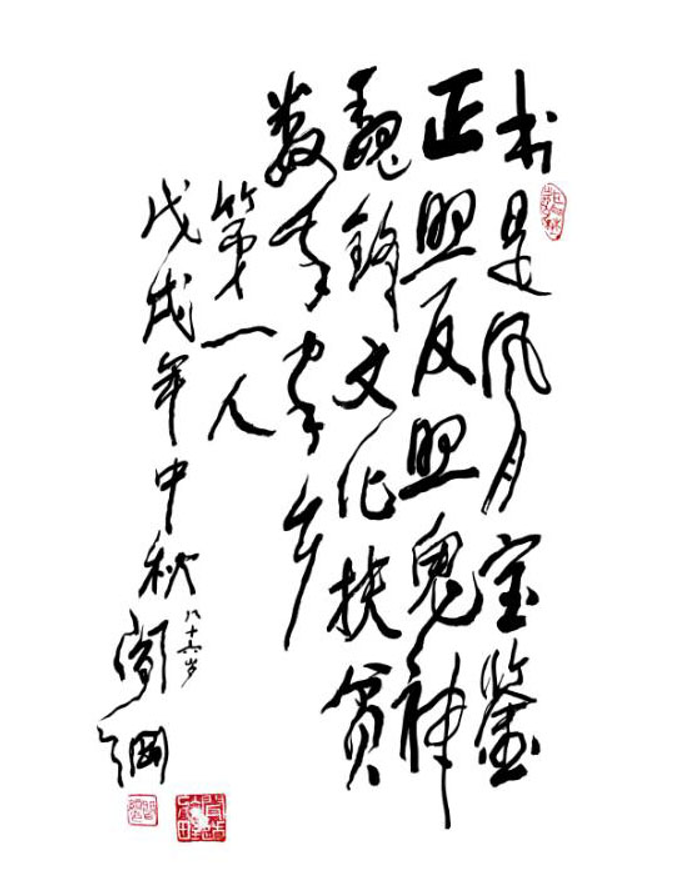 书是风月宝鉴
正照反照鬼神
魏锋文化扶贫
数家乡
第一人
戊戌年中秋
八十六岁
阎纲